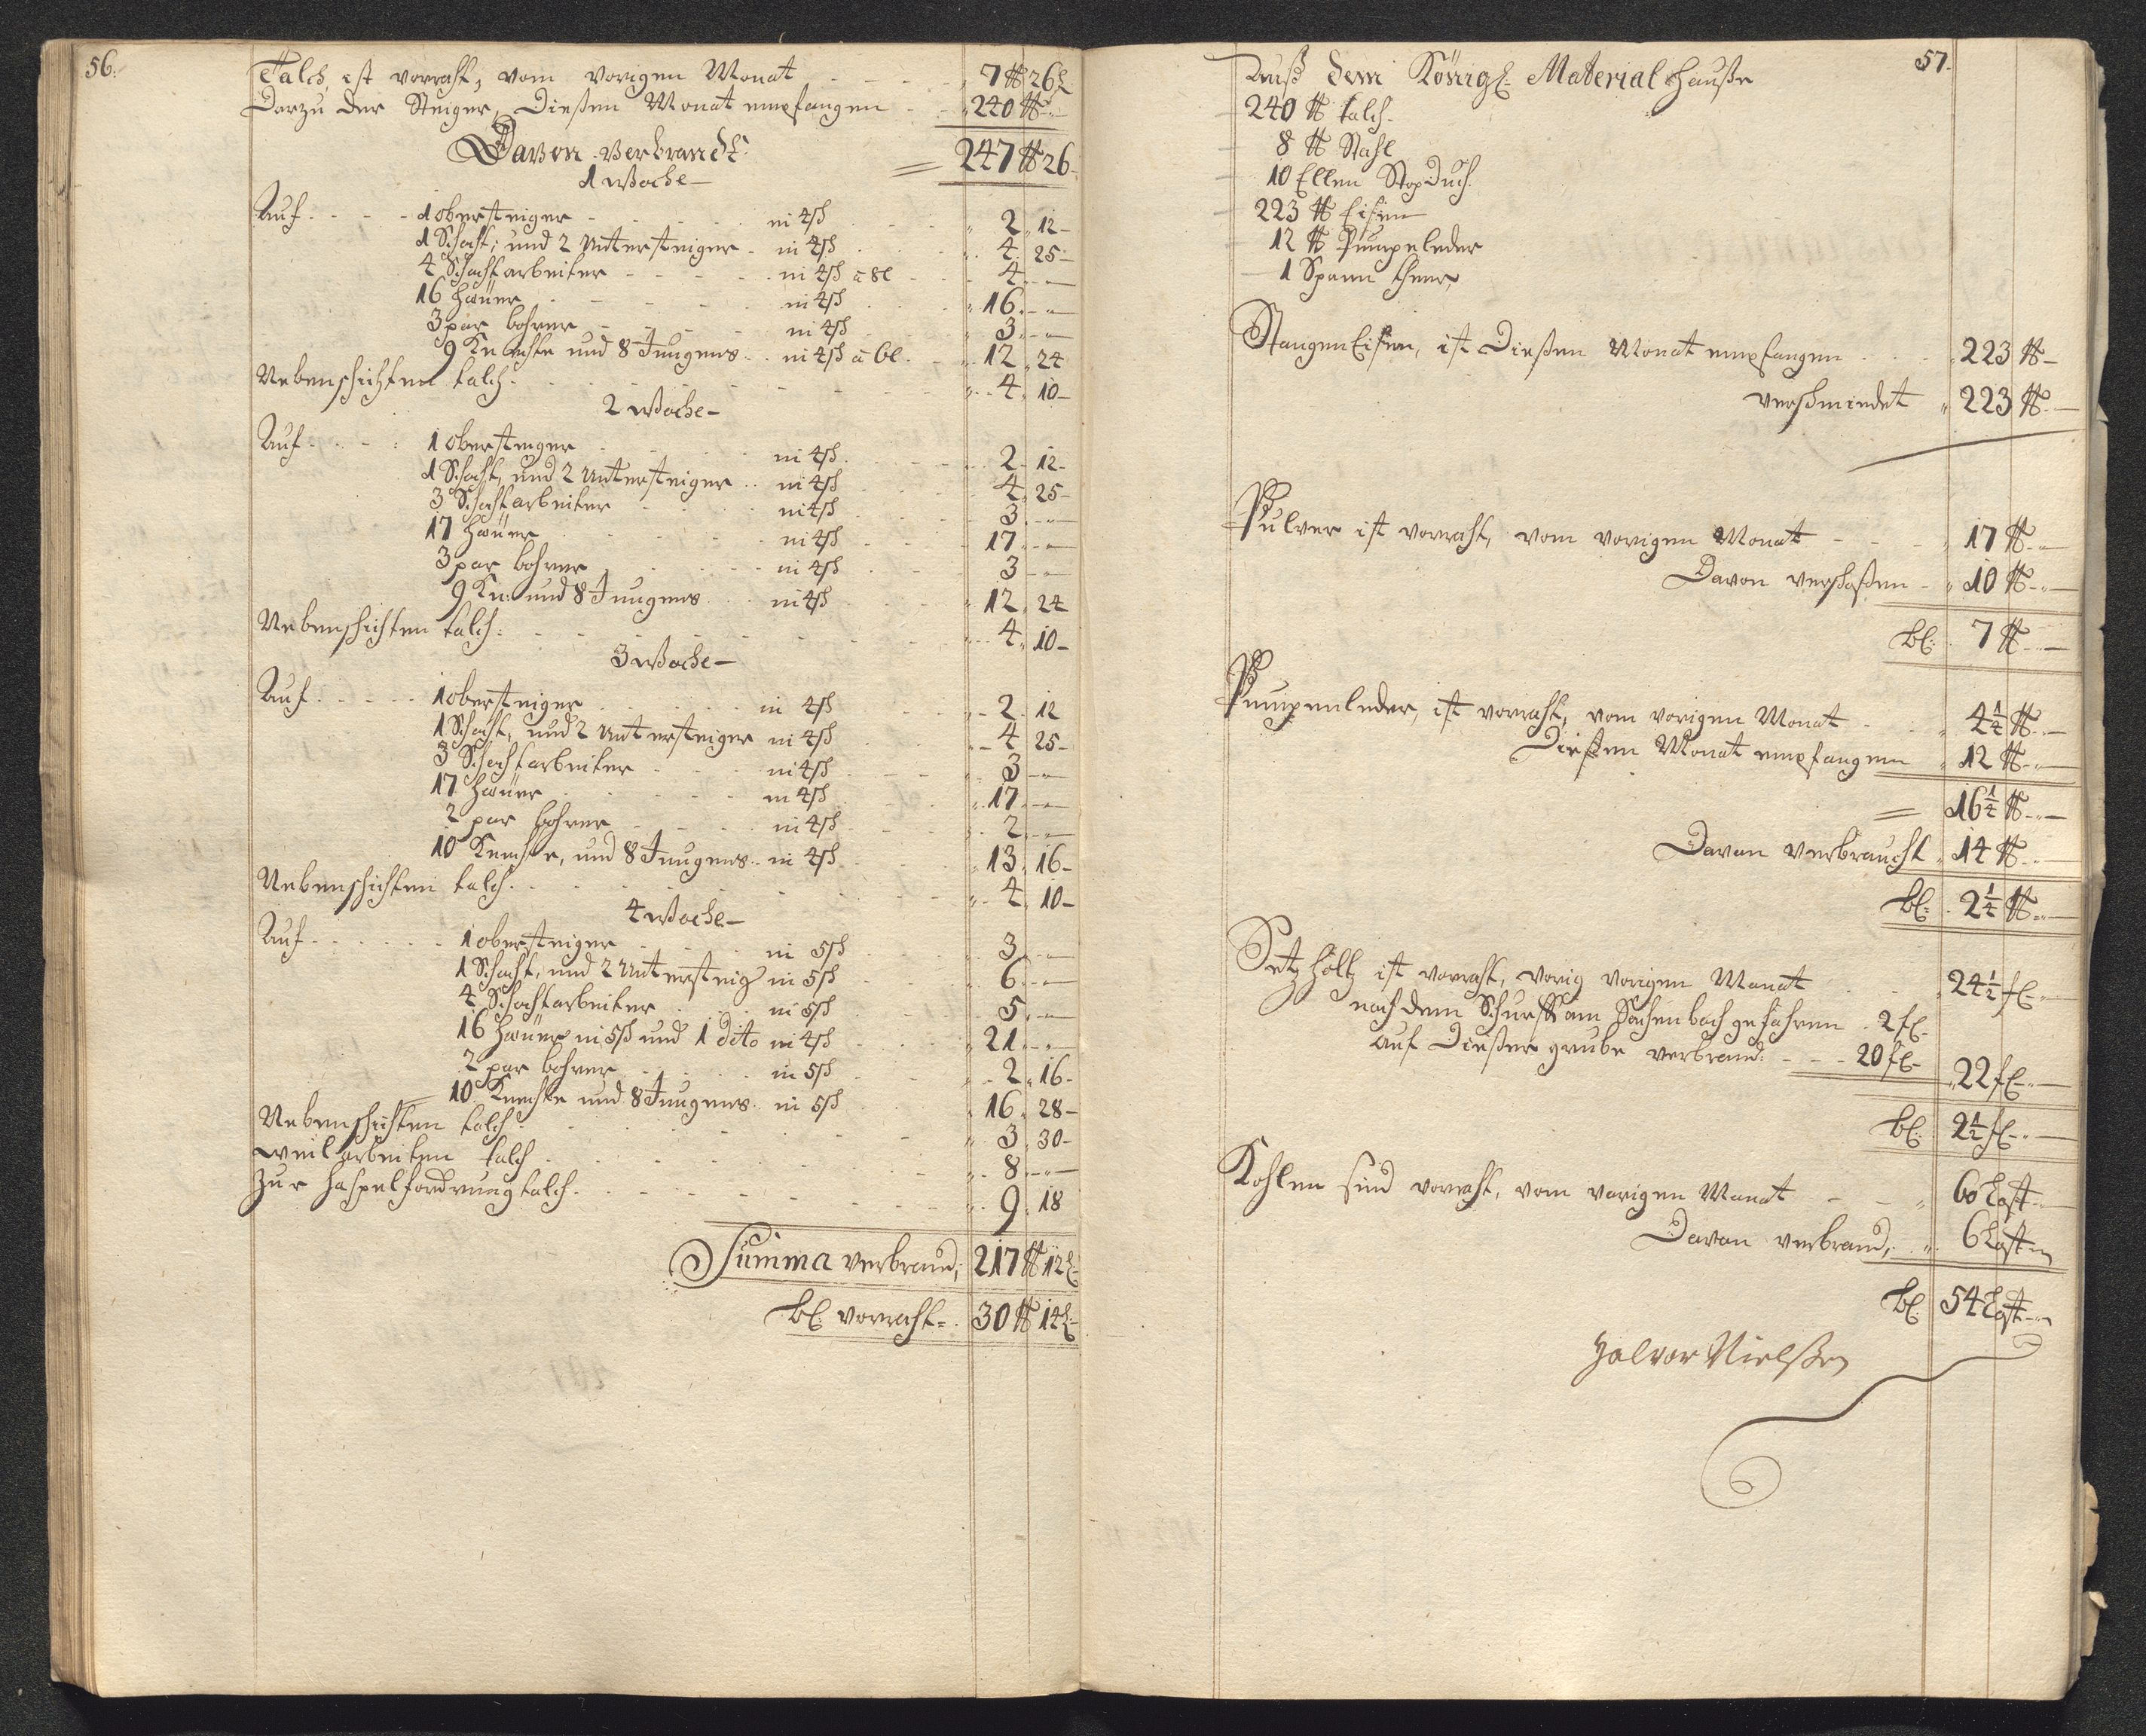 56.
Talch, ist vorraht, vom vorigen Monat - - - 7 ℔ 26 l
Darzu der Steiger, Dießen Monat empfangen - - 240 ℔ -
Davon verbrandt = 247 ℔ 26 -
1 Woche -
Auf - - - 1 obersteiger - - - in 4ß - - - 2. 12 -
1 Schacht; und 2 Untersteiger - in 4ß - - - 4. 25 -
4 Schachtarbeiter - - - in 4ß a 8l - - 4. -
16 Häuer - - - in 4ß - - - 16. -
3 par bohrer - - - in 4ß - - - 3. -
9 Knechte und 8 Jungens - - in 4ß a 6l - - 12. 24
Nebenschichten talch - - - 4. 10 -
2 Woche -
Auf - - - 1 obersteiger - - - in 4ß - - - 2. 12 -
1 Schacht, und 2 Untersteiger - - in 4ß - - - 4. 25 -
3 Schachtarbeiter - - - in 4ß - - - 3. -
17 Häuer - - - in 4ß - - - 17. -
3 par bohrer - - - in 4ß - - - 3 -
9 Kn: und 8 Jungens - - in 4ß - - - 12. 24
Nebenschichten talch: - - - 4. 10 -
3 Woche -
Auf - - - 1 obersteiger - - - in 4ß - - - 2. 12
1 Schacht, und 2 Untersteiger in 4ß - - - 4 25 -
3 Schachtarbeiter - - - in 4ß - - - 3 -
17 Häuer - - - in 4ß - - - 17. -
2 par bohrer - - - in 4ß - - - 2. -
10 Knechte, und 8 Jungens - - in 4ß - - - 13. 16 -
Nebenschichten talch - - - 4. 10 -
4 Woche -
Auf - - - 1 obersteiger - - - in 5ß - - - 3. -
1 Schacht, und 2 Untersteig in 5ß - - - 6. -
4 Schachtarbeiter - - - in 5ß - - - 5. -
16 Häuer in 5ß und 1 dito in 4ß - - - 21. -
2 par bohrer - - - in 5ß - - - 2. 16 -
10 Knechte und 8 Jungens in 5ß - - - 16. 28 -
Nebenschichten talch - - - 3. 30 -
weilarbeiten talch - - - 8. -
Zur Haspelfordrung talch - - - 9. 18
Summa verbrand; 217 ℔ 12 l
bl: vorraht - 30 ℔ 14 l
57.
Auß dem Königl: Material Hauße
240 ℔ talch -
8 ℔ Stahl
10 Ellen StopDuch
223 ℔ Eisen
12 ℔ Pumpeleder
1 Spann theer,
StangenEisen, ist Dießen Monat empfangen - - - 223 ℔ -
verschmiedet 223 ℔ -
Pulver ist vorraht, vom vorigen Monat - - - 17 ℔ -
Davon verschoßen - 10 ℔ -
bl: 7 ℔ -
Pumpenleder, ist vorraht, vom vorigen Monat - - 4¼ ℔ -
Dießen Monat empfangen 12 ℔ -
= 16¼ ℔ -
Davon verbraucht 14 ℔ -
bl: 2¼ ℔ -
Setzholtz ist vorraht, vorig vorigen Monat - - 24½ fl -
nach dem Schurff am Sachenbach gefahren . 2 fl -
auf Dießer grube verbrand: - - - 20 fl - 22 fl -
bl: 2½ fl -
Kohlen sind vorraht, vom vorigen Monat - - - 60 Last -
Davon verbrand, . 6 Last -
bl: 54 Last -
Halvor Nielßen